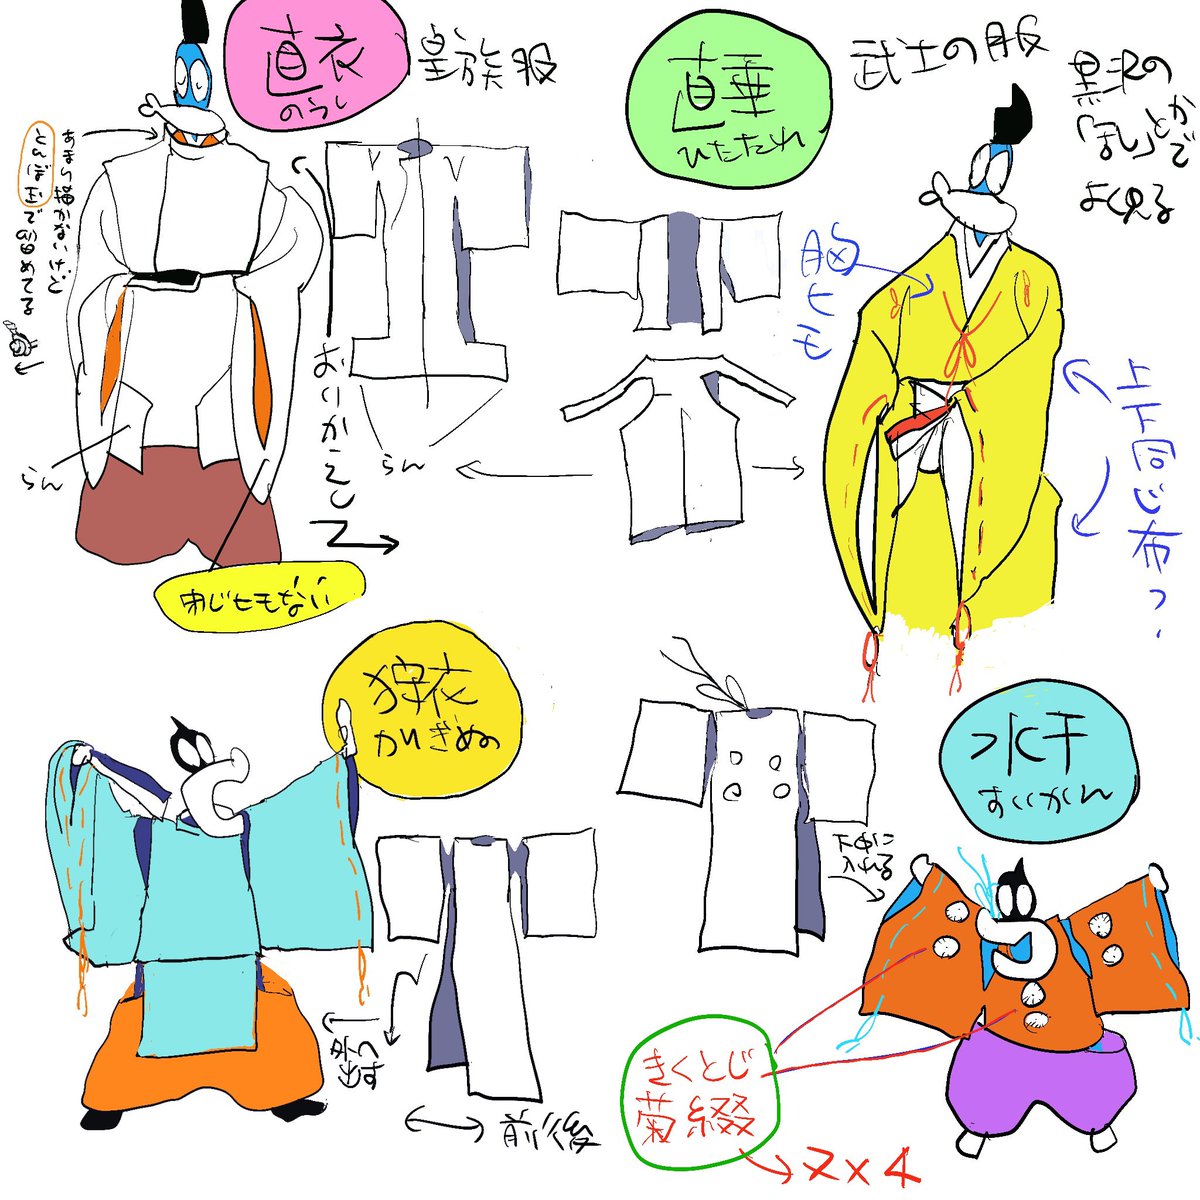 直衣
のうし
皇族服
あまり描かないけど
とんぼ玉で留めてる
おりかえし
らん
らん
閉じヒモない
直垂
ひたたれ
武士の服
黒沢の
「乱」とかで
よく見る
胸ヒモ
上下同じ布っ
狩衣
かりぎぬ
外っ
出す
前後
水干
すいかん
下中に
入れる
きくとじ
菊綴
2×4